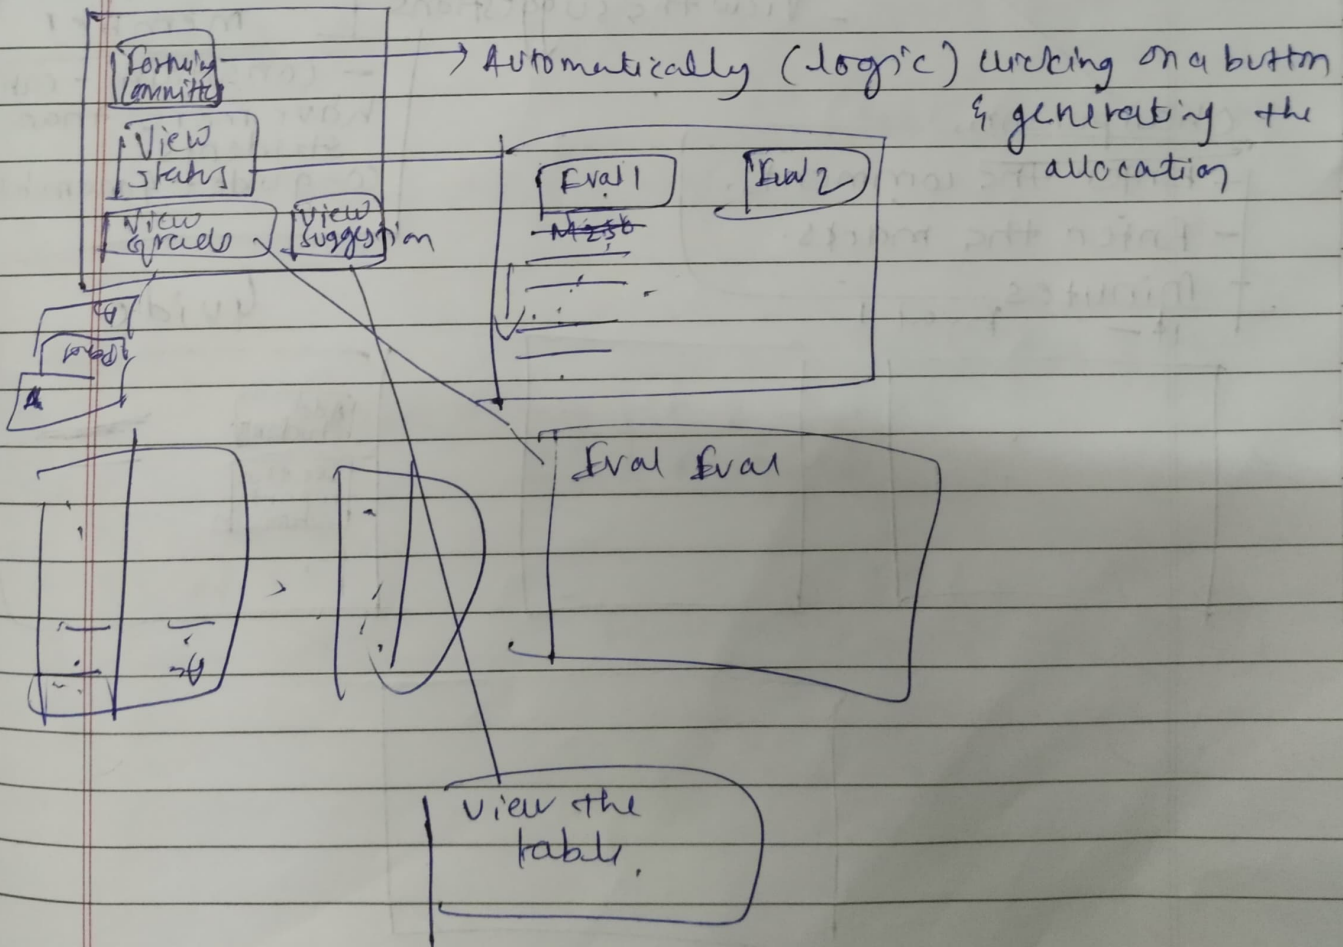 Forming
Committee
→ Automatically (logic) clicking on a button
& generating the
allocation
View
Status
Eval 1
Eval 2
View
grades
View
Suggestion
Eval Eval
View the
table.